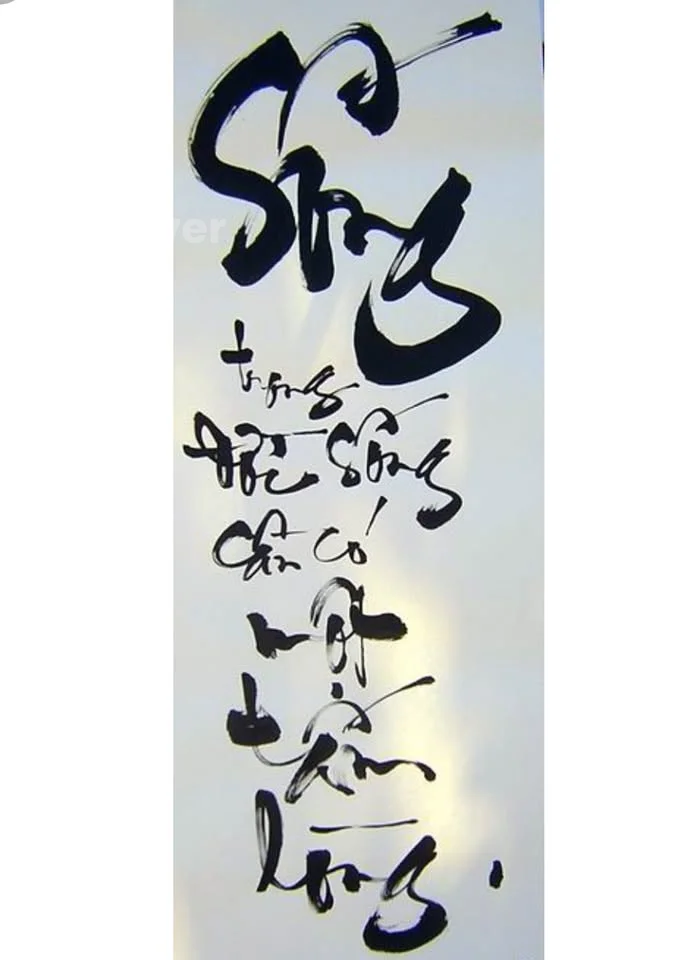 Sống
trong
đời sống
cần có
một
tấm
lòng.
ver